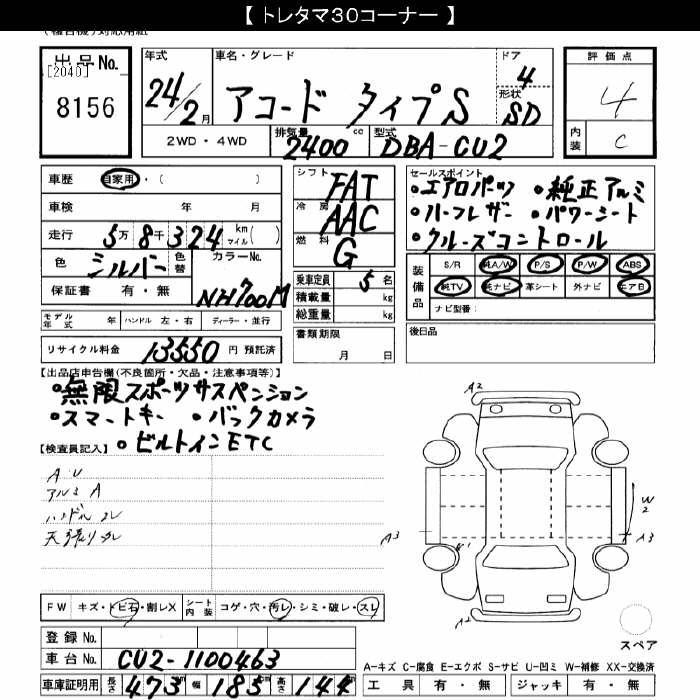 【 トレタマ30コーナー 】
出品No. 年式 車名・グレード ドア 評価点
[2040] 24/2月 アコード タイプS 4 4
8156 形状 SD
2WD・4WD 排気量 2400cc 型式 DBA-CU2 内装 C
車歴 自家用・( ) シフト FAT セールスポイント
車検 年 月 冷房 AAC ・エアロパーツ ・純正アルミ
走行 5万8千324 km マイル( ) 燃料 G ・ハーフレザー ・パワーシート
色 シルバー 色替 カラーNo. NH700M ・クルーズコントロール
保証書 有・無 乗車定員 5名 装備品 S/R 純A/W P/S P/W ABS
積載量 kg 純TV 純ナビ 革シート 外ナビ エアB
モデル年式 年 ハンドル 左・右 ディーラー・並行 総重量 kg ナビ型番:
リサイクル料金 13550 円 預託済 書類期限 月 日 後日品
【出品店申告欄(不良箇所・欠品・注意事項等)】
・無限スポーツサスペンション
・スマートキー ・バックカメラ
・ビルトインETC
【検査員記入】
A・U
アルミ A
ハンドル スレ
天張り スレ
A2
W2
A3 A3
A2
FW キズ・トビ石・割レX シート内装 コゲ・穴・汚レ・シミ・破レ・スレ
スペア
登録No.
車台No. CU2-1100463
A-キズ C-腐食 E-エクボ S-サビ U-凹ミ W-補修 XX-交換済
車庫証明用 長さ 473cm 幅 185cm 高さ 144cm 工具 有・無 ジャッキ 有・無